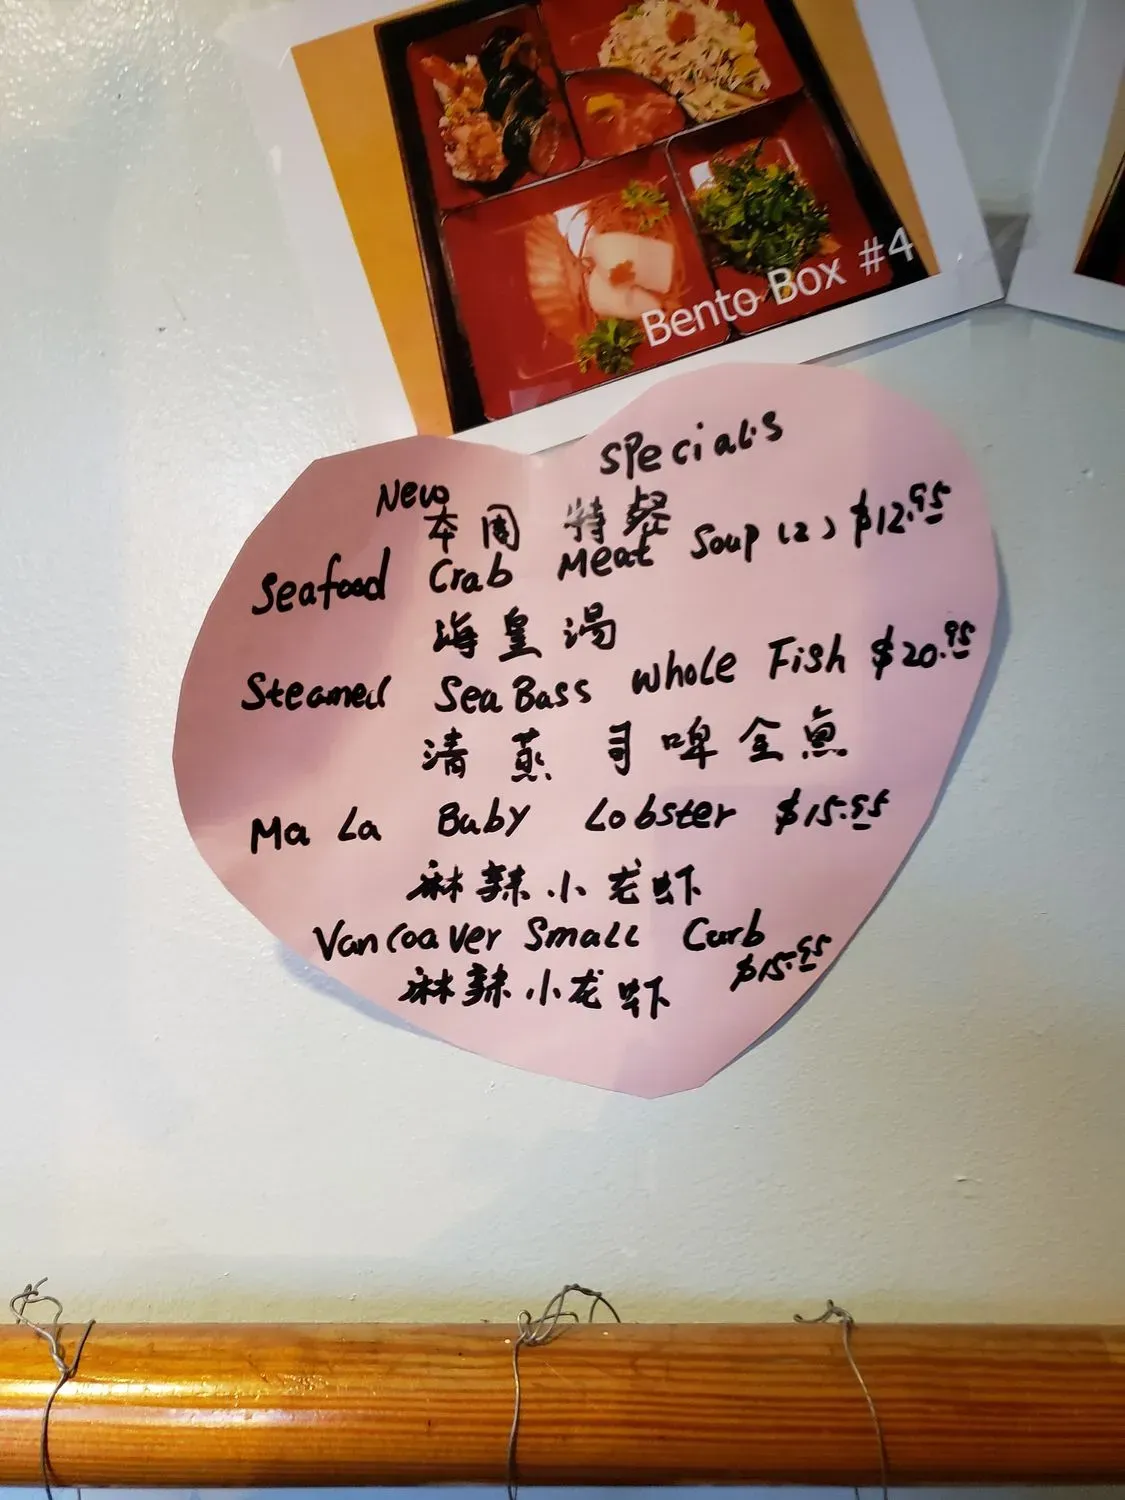 Bento Box #4
New Specials
本周 特餐
Seafood Crab Meat Soup (2) $12.95
海皇湯
Steamed Sea Bass Whole Fish $20.95
清蒸 司啤全魚
Ma La Baby Lobster $15.95
麻辣小龙虾
Vancoaver Small Curb
$15.95
麻辣小龙虾